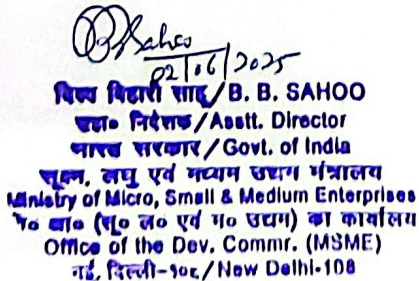 BBSahoo
02/06/2025
विपिन बिहारी साहू/B. B. SAHOO
सहा० निदेशक/Asstt. Director
भारत सरकार/Govt. of India
सूक्ष्म, लघु एवं मध्यम उद्यम मंत्रालय
Ministry of Micro, Small & Medium Enterprises
वि० आ० (सू० ल० एवं म० उद्यम) का कार्यालय
Office of the Dev. Commr. (MSME)
नई दिल्ली-108/New Delhi-108